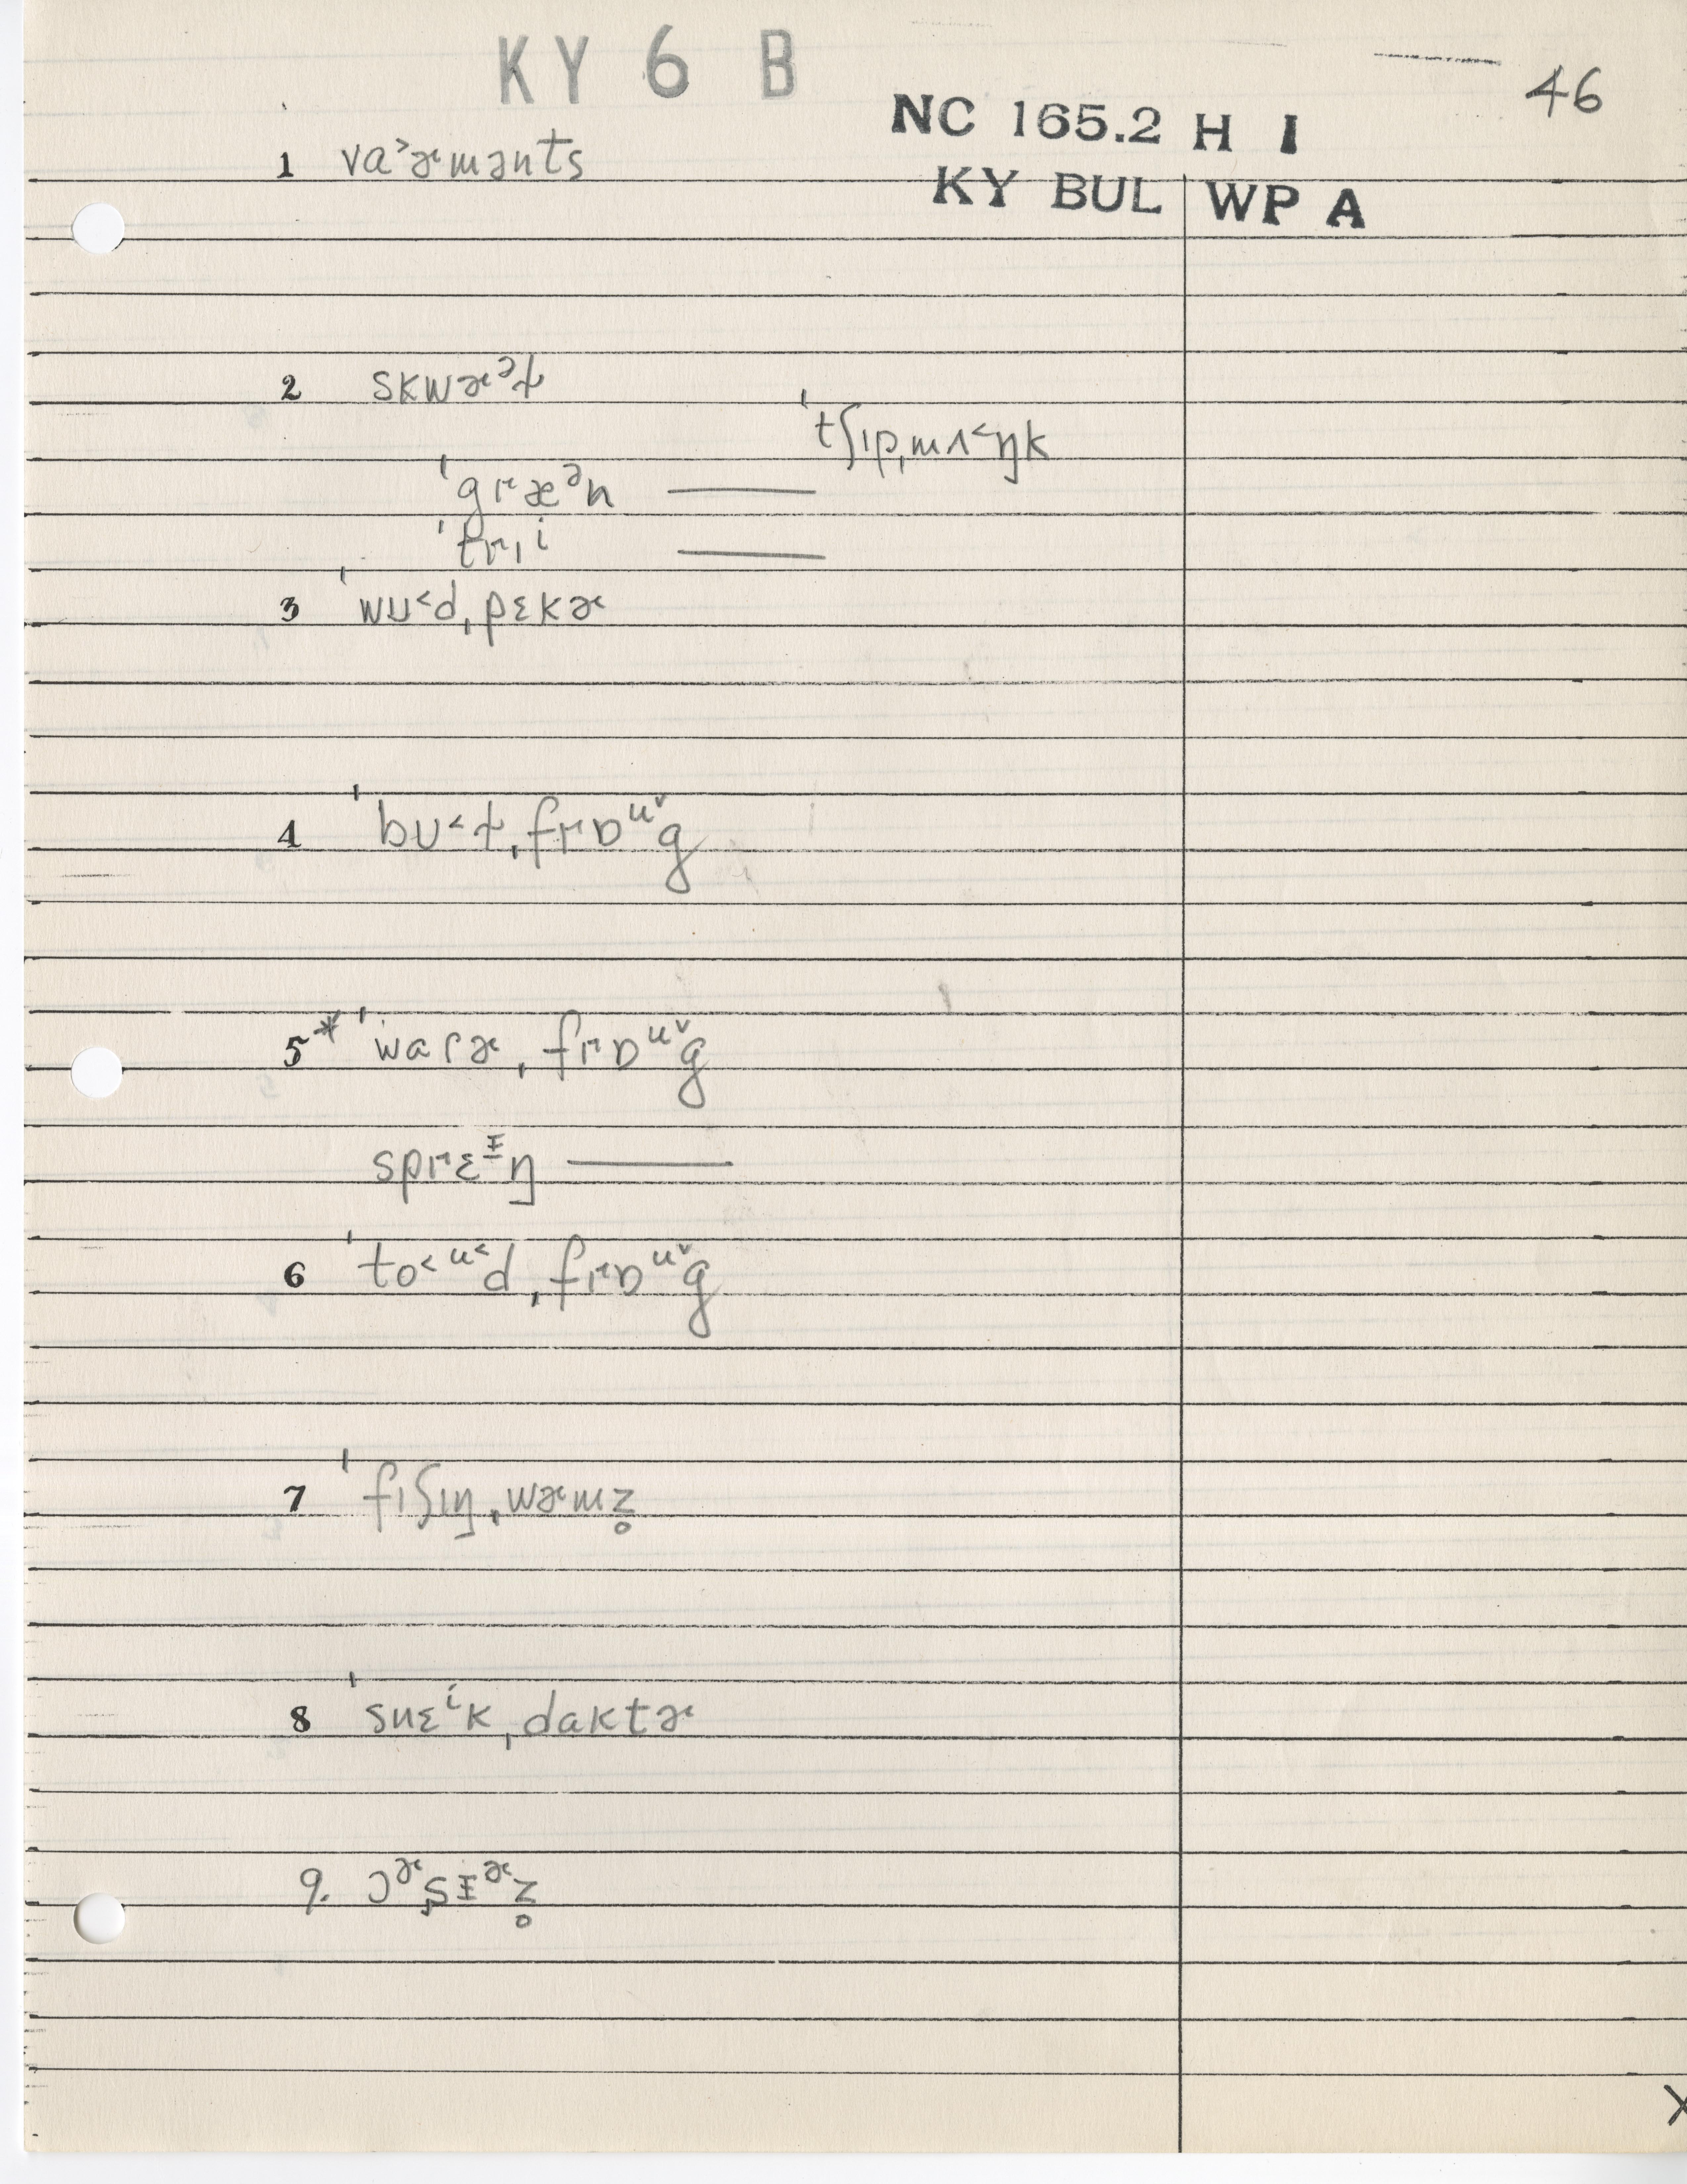 KY 6 B
46
NC 165.2 H I
KY BUL WP A
1 va˃ɚmənts
2 skwɚᵊt̬
ˈtʃɪpˌmʌ˂ŋk
ˈgræᵊn ———
ˈtrɪⁱ ———
3 ˈwᴜ˂dˌpɛkɚ
4 ˈbᴜ˂t̬ˌfrɒᵘ˅g
5* ˈwaɾɚˌfrɒᵘ˅g
sprɛᶧŋ ———
6 ˈto˂ᵘ˂dˌfrɒᵘ˅g
7 ˈfɪʃɪŋˌwɚmz̥
8 ˈsnɛⁱkˌdaktɚ
9. ɔᵊ˞s̬ɨᵊ˞z̥
X